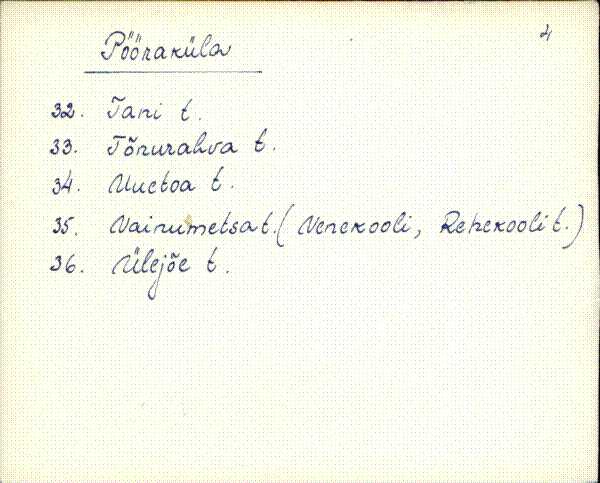 4
Pööraküla
32. Tani t.
33. Tõnurahva t.
34. Uuetoa t.
35. Vainumetsa t. (Venekooli, Rehekooli t.)
36. Ülejõe t.